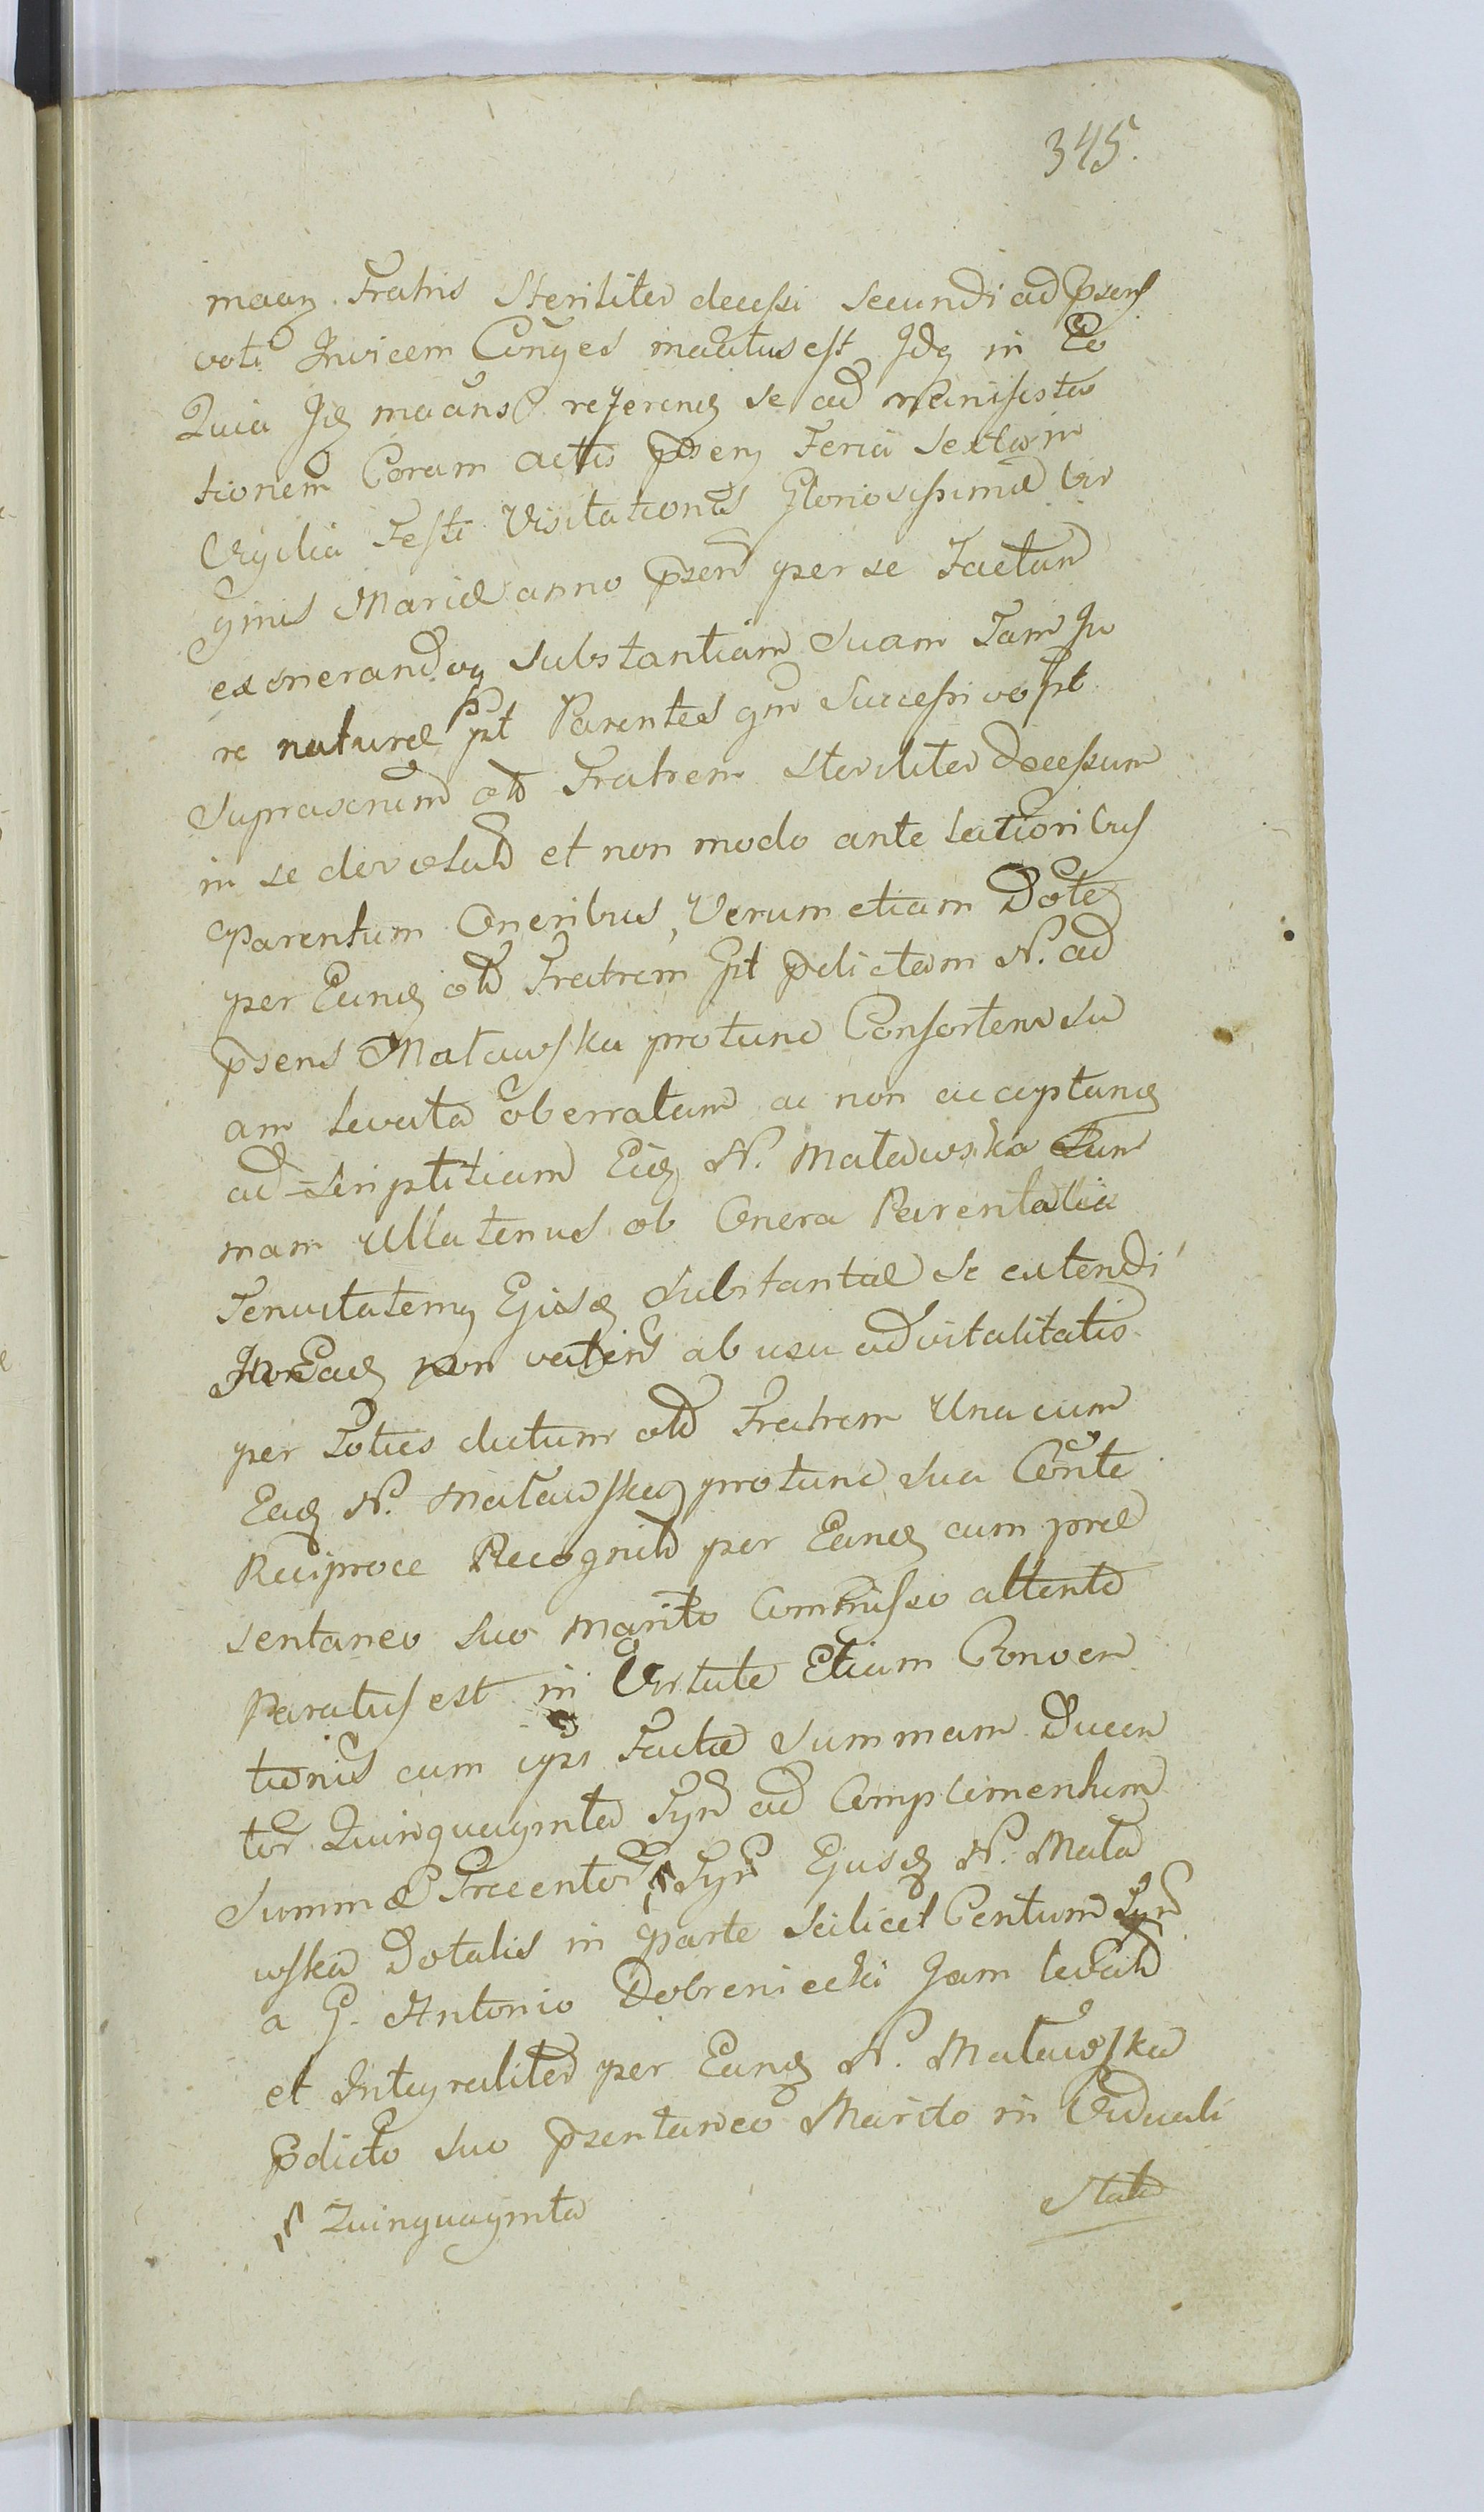 345.
maaq Fratris Steriliter decessi secundi ad p̃sens
voti Invicem Conỹes maãtus est Idq in Eo
Quia Iq maãns referenq se ad manifesta
tionem Coram actis p̃senq Feria Sexta in
Vigilia Festi Visitationis Gloriosissimæ Vir
ginis Mariæ anno p̃sen per se Factam
exonerandoq Substantiam Suam Tam Ju
re naturæ p̃t Parentes qm Successive p̃t
Suprascrium olĩ Fratrem steriliter Decessum
in se devolutã et non modo ante latioribus
Parentum Oneribus, Verum etiam Dote
per Eunq olĩ Fratrem p̃t p̃dictam N. ad
p̃sens Matawska protunc Consortem su
am levata oberratam ac non acceptanq
ad-scriptitiam Eiq N. Matawska Sum
mam Ullatenus ob Onera Parentalia
Tenuitatemq Ejusq Substantiæ se extendi
Eaq non valen ab usu advitalitatis
per Toties dictum olĩ Fratrem Una cum
Eaq N. Matawska protunc sua Con̄te
Reciproce Recognitæ per Eanq cum præ
sentaneo suo Marito Commisso attente
Paratus est in Virtute Etiam Conven
tionis cum ip̃s Factæ Summam Ducen
tor Quinquaginta Fỹn ad Complimentum
Summæ Trecentor Fỹn Ejusq N. Mata
wska Dotalis in parte Scilicet Centum Fỹn
a G. Antonio Dobreniecki Jam levatæ
et Integraliter per Eanq N. Matawska
p̃dicto suo p̃sentaneo Marito in Viduali
Quinquaginta
Statu